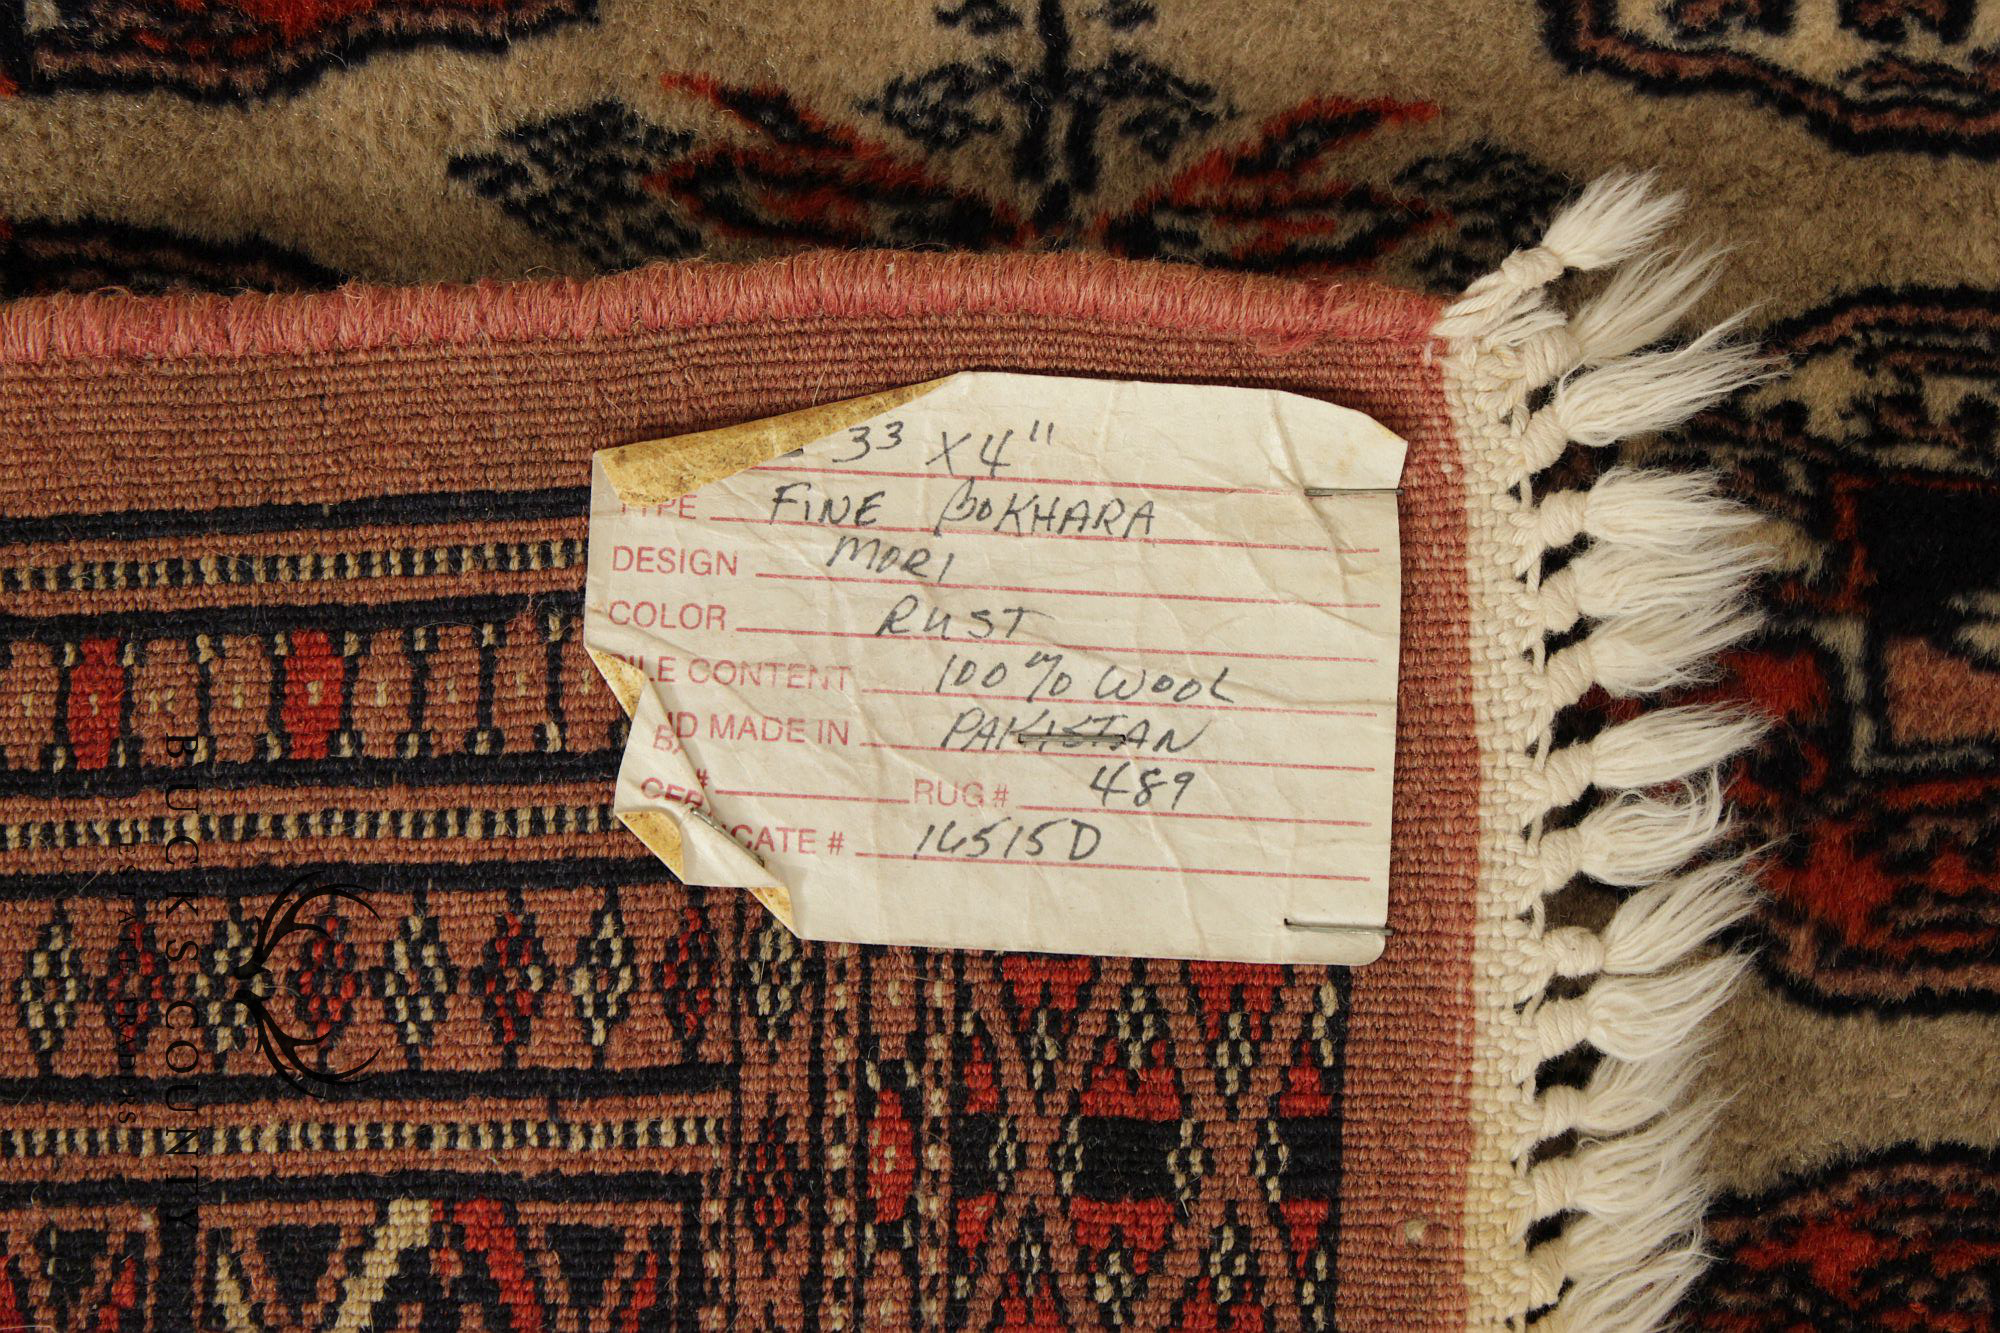 3³ X 4"
TYPE FINE BOKHARA
DESIGN MORI
COLOR RUST
ILE CONTENT 100% WOOL
ND MADE IN PAKISTAN
# RUG # 489
CATE # 16515D
BUCKS COUNTY
ESTATE TRADERS